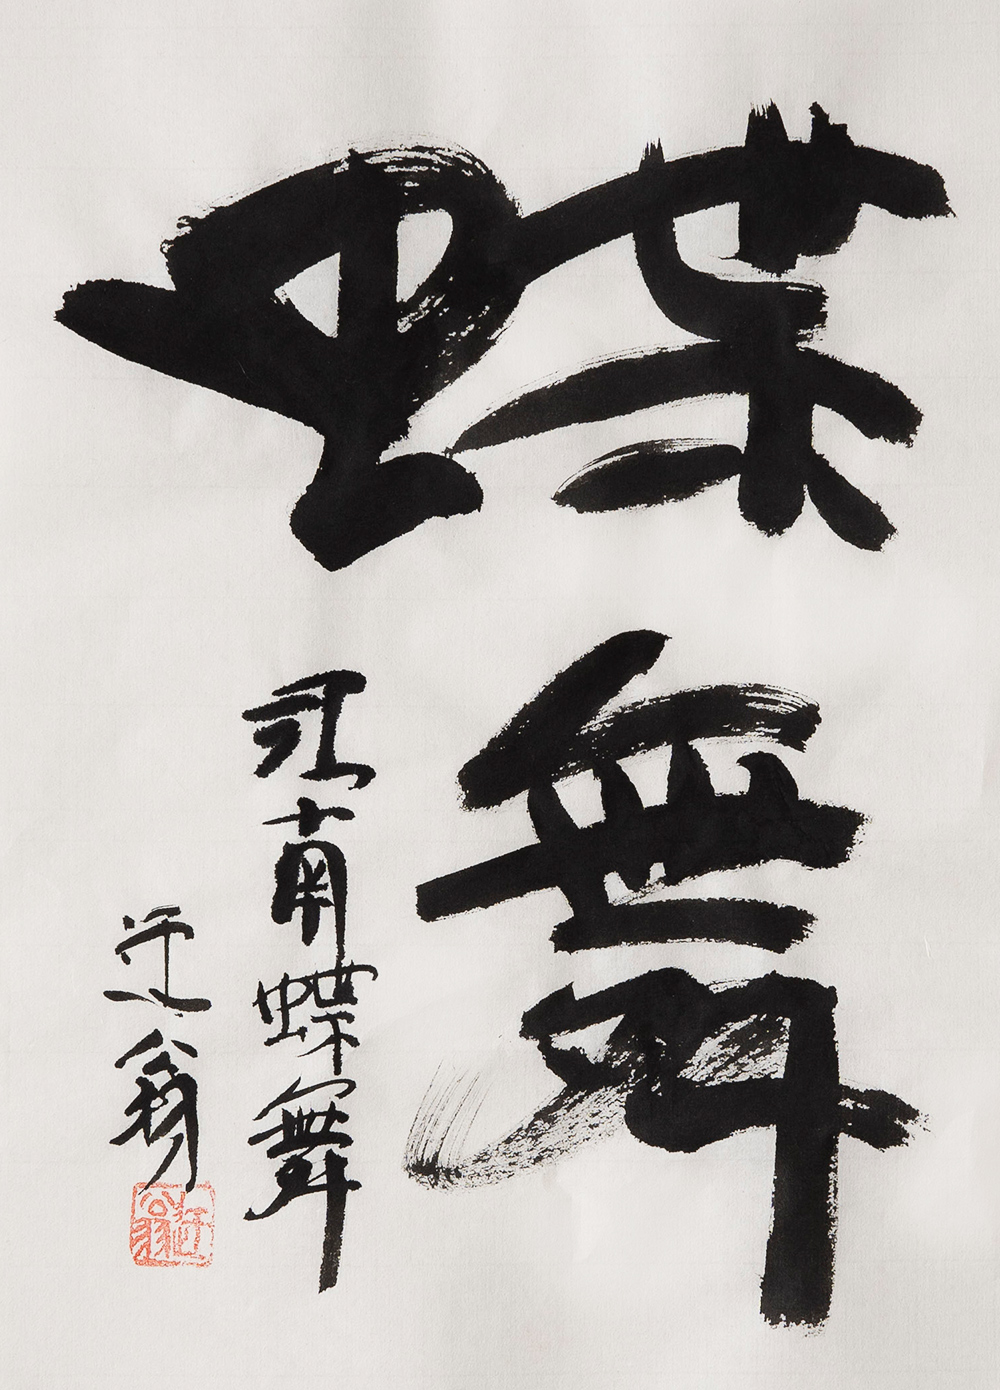 蝶舞
南蝶舞
迂翁
迂翁